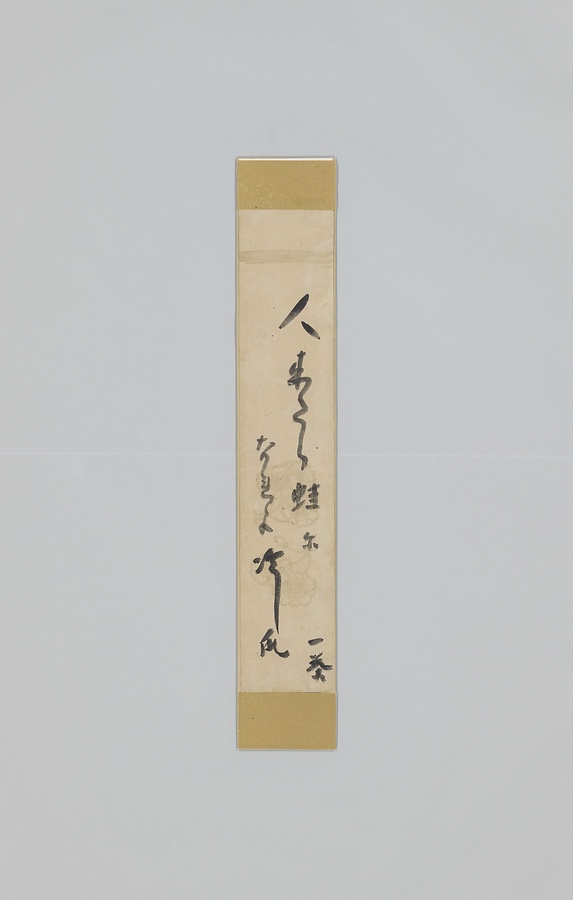 人来たら蛙尓
なれよ冷し瓜
一茶